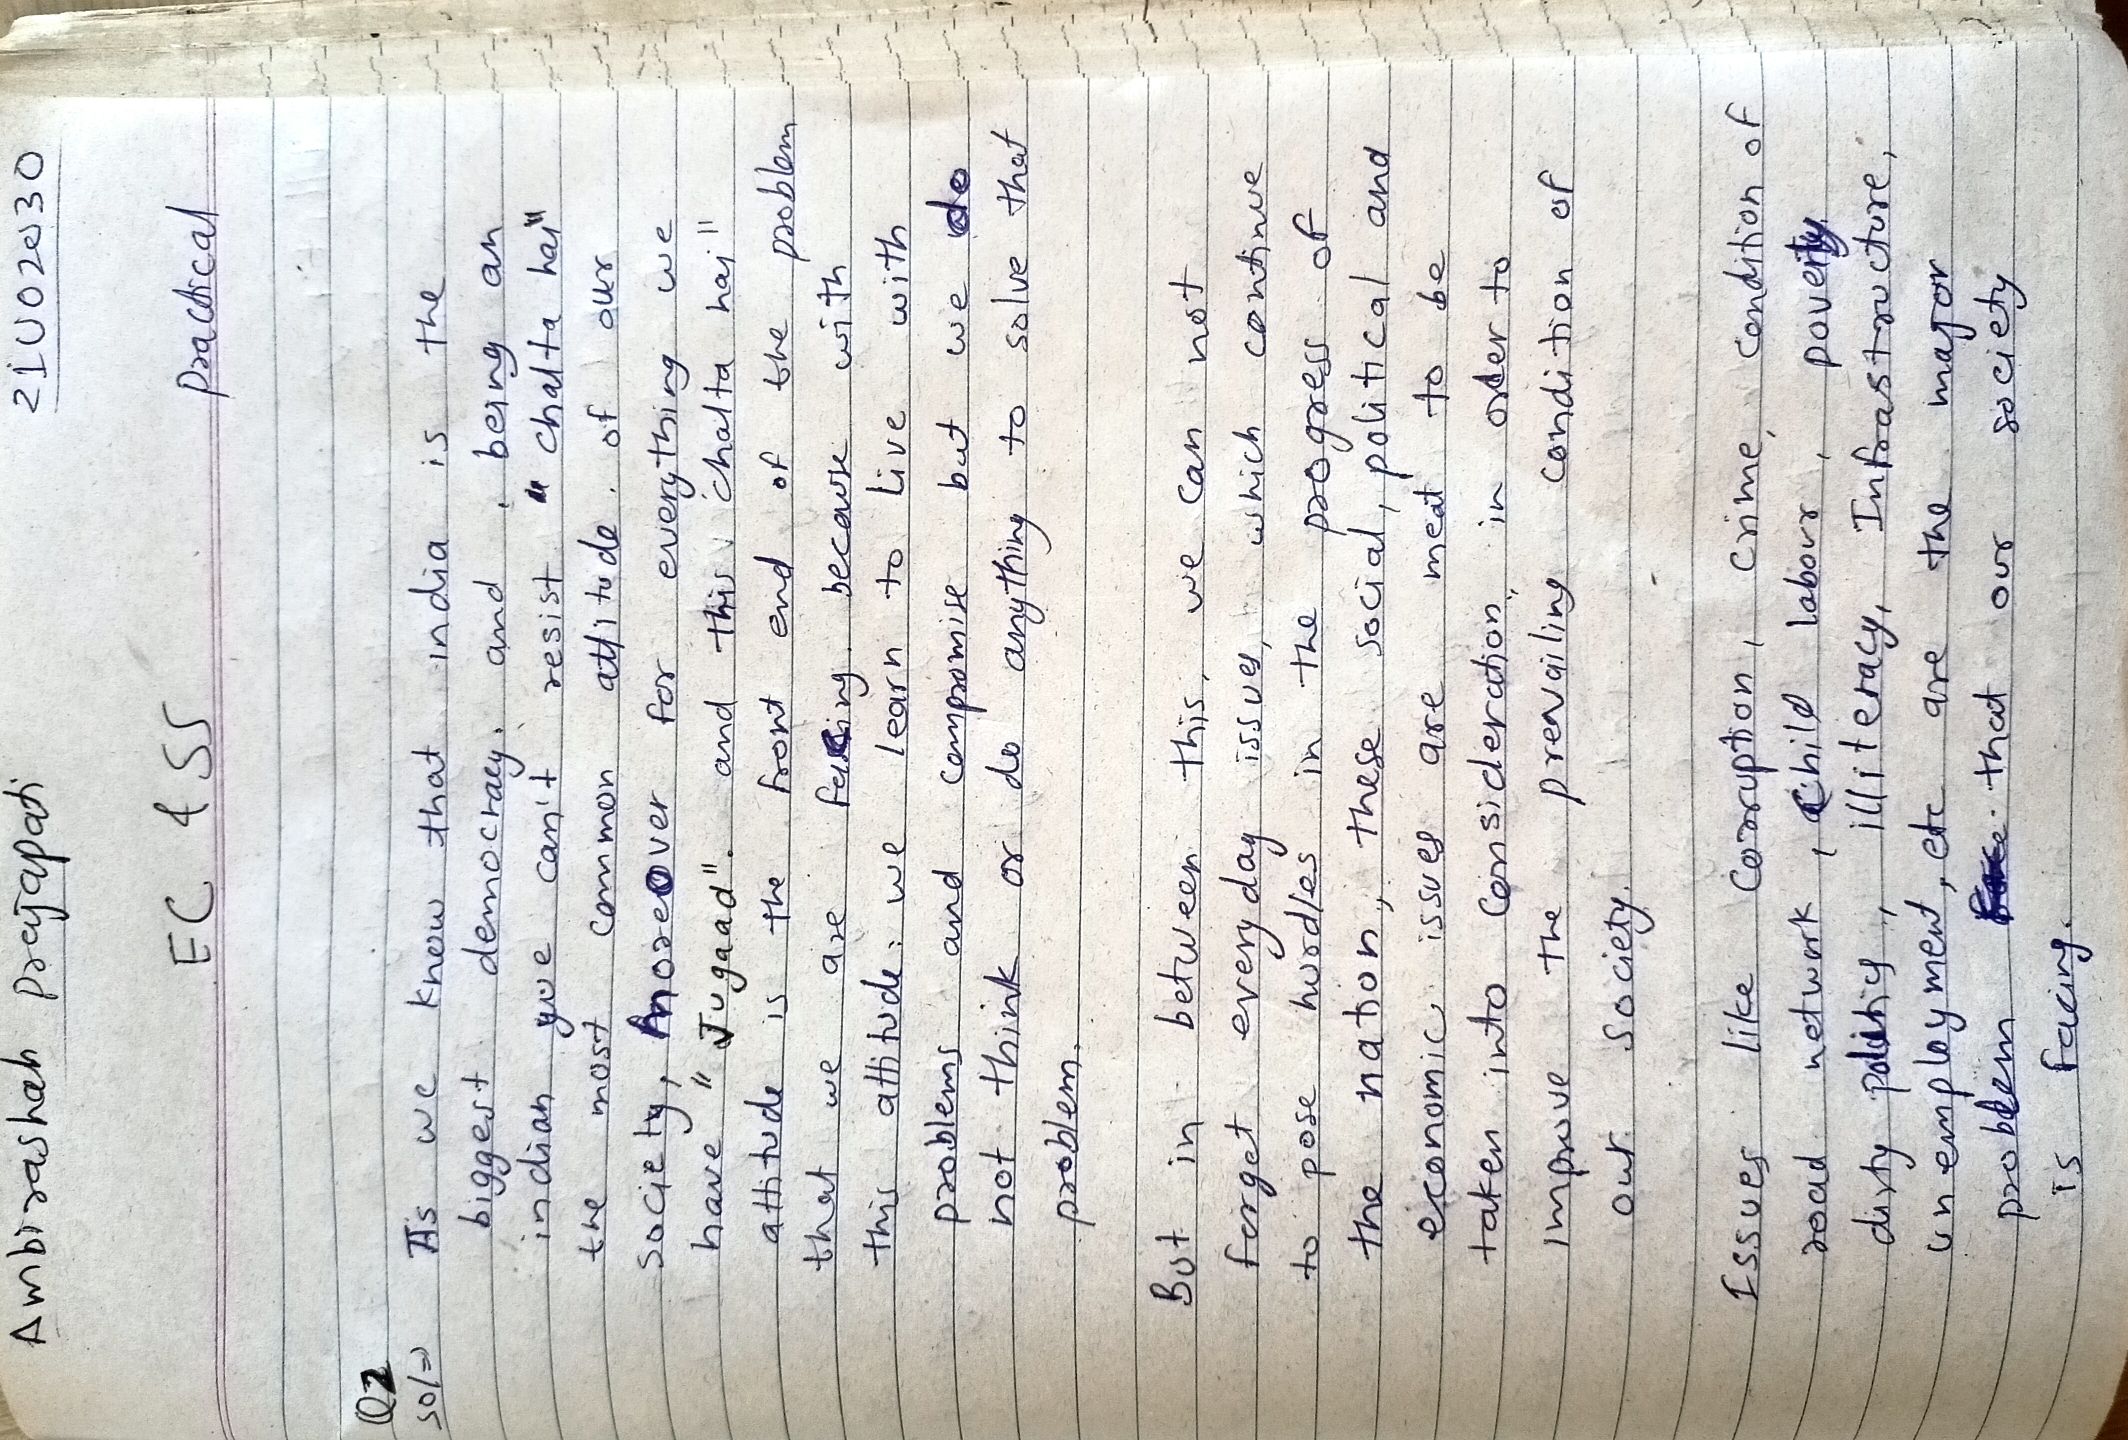 Ambirashah prajapati 21U02030
EC & SS practical
Q2
sol⇒ As we know that india is the
biggest democracy. and , being an
indian you can't resist "chalta hai"
the most common attitude. of our
society, moreover for everything we
have "Jugaad". and this "chalta hai"
attitude is the front end of the problem
that we are facing. because with
this attitude. we learn to live with
problems and compromise but we do
not think or do anything to solve that
problem.
But in between this, we can not
forget everyday issues, which continue
to pose hurdles in the progress of
the nation, these social, political and
economic issues are meat to be
taken into consideration, in order to
improve the prevailing condition of
our society.
Issues like corruption, crime, condition of
road network, child labour, poverty,
dirty politics, illiteracy, Infrastructure,
unemployment, etc are the major
problem that our society
is facing.